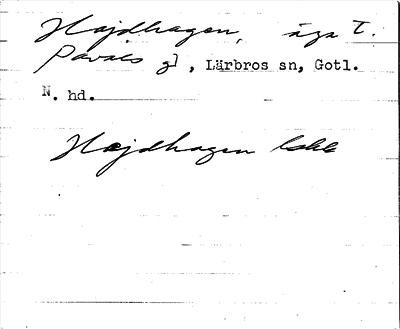 Hajdhagen, äga t.
Pavals gd, Lärbros sn, Gotl.
N. hd.
Hajdhagen